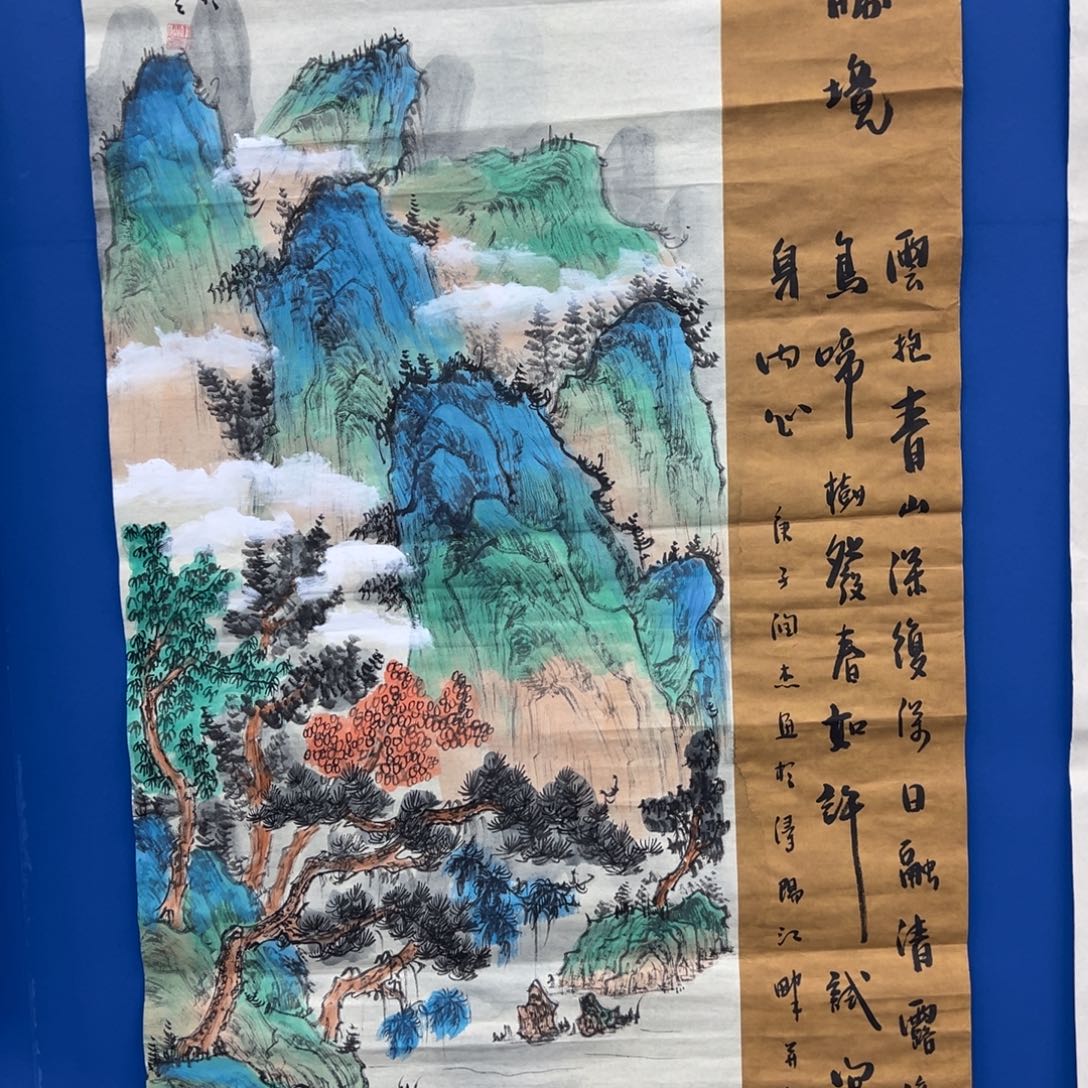 勝境
雲抱青山深復深日融清露
鳥啼樹發春如許試問
身内心
庚子润杰画於浔陽江畔并